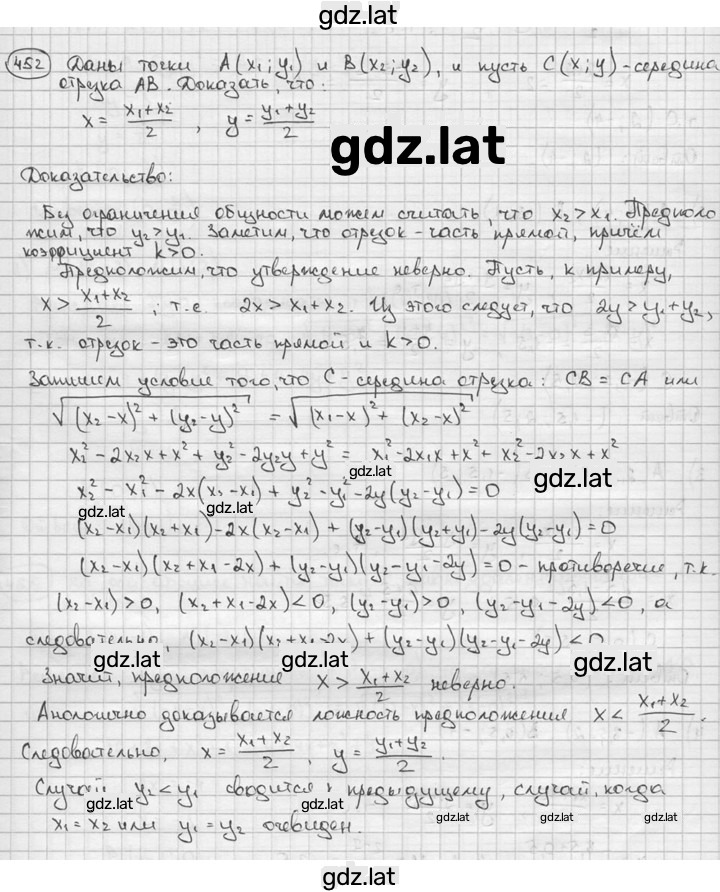 gdz.lat
452 Даны точки A(x₁; y₁) и B(x₂; y₂), и пусть C(x; y) - середина
отрезка AB. Доказать, что:
x = (x₁+x₂)/2 , y = (y₁+y₂)/2
gdz.lat
Доказательство:
Без ограничения общности можем считать, что x₂ > x₁. Предполо
жим, что y₂ > y₁. Заметим, что отрезок - часть прямой, причём
коэффициент k>0.
Предположим, что утверждение неверно. Пусть, к примеру,
x > (x₁+x₂)/2 ; т.е. 2x > x₁+x₂. Из этого следует, что 2y > y₁+y₂,
т.к. отрезок - это часть прямой и k>0.
Запишем условие того, что C - середина отрезка: CB = CA или
√((x₂-x)² + (y₂-y)²) = √((x₁-x)² + (x₂-x)²)
x₂² - 2x₂x + x² + y₂² - 2y₂y + y² = x₁² - 2x₁x + x² + x₂² - 2x₂x + x²
gdz.lat
gdz.lat
x₂² - x₁² - 2x(x₂-x₁) + y₂² - y₁² - 2y(y₂-y₁) = 0
gdz.lat
(x₂-x₁)(x₂+x₁) - 2x(x₂-x₁) + (y₂-y₁)(y₂+y₁) - 2y(y₂-y₁) = 0
(x₂-x₁)(x₂+x₁-2x) + (y₂-y₁)(y₂-y₁-2y) = 0 - противоречие, т.к.
(x₂-x₁) > 0, (x₂+x₁-2x) < 0, (y₂-y₁) > 0, (y₂-y₁-2y) < 0, а
следовательно, (x₂-x₁)(x₂+x₁-2x) + (y₂-y₁)(y₂-y₁-2y) < 0
gdz.lat
gdz.lat
gdz.lat
Значит, предположение x > (x₁+x₂)/2 неверно.
Аналогично доказывается ложность предположения x < (x₁+x₂)/2.
Следовательно, x = (x₁+x₂)/2 , y = (y₁+y₂)/2.
gdz.lat
gdz.lat
Случай y₂ < y₁ сводится к предыдущему, случай, когда
gdz.lat
x₁ = x₂ или y₁ = y₂ очевиден.
gdz.lat
gdz.lat
gdz.lat
gdz.lat